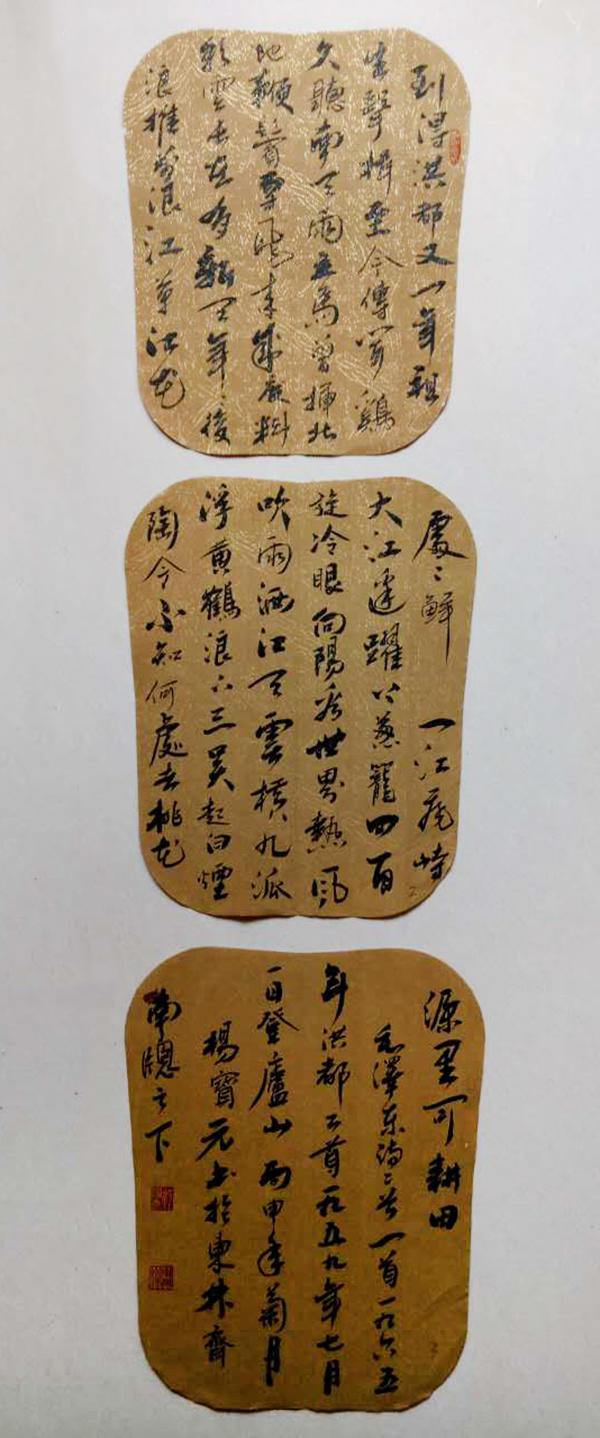 到得洪都又一年祖
生擊楫至今傳聞鷄
久聽南天雨立馬曾揮北
地鞭鬢雪飛来成廢料
彩雲長在有新天年〻後
浪推前浪江草江花
處〻鮮 一江飛峙
大江邊躍上葱蘢四百
旋冷眼向陽看世界熱風
吹雨洒江天雲橫九派
浮黄鶴浪下三吴起白煙
陶令不知何處去桃花
源里可耕田
毛澤东詩二首一首一九六五
年洪都二首一九五九年七月
一日登廬山丙申年菊月
楊寳元书於東林齋
南牕之下